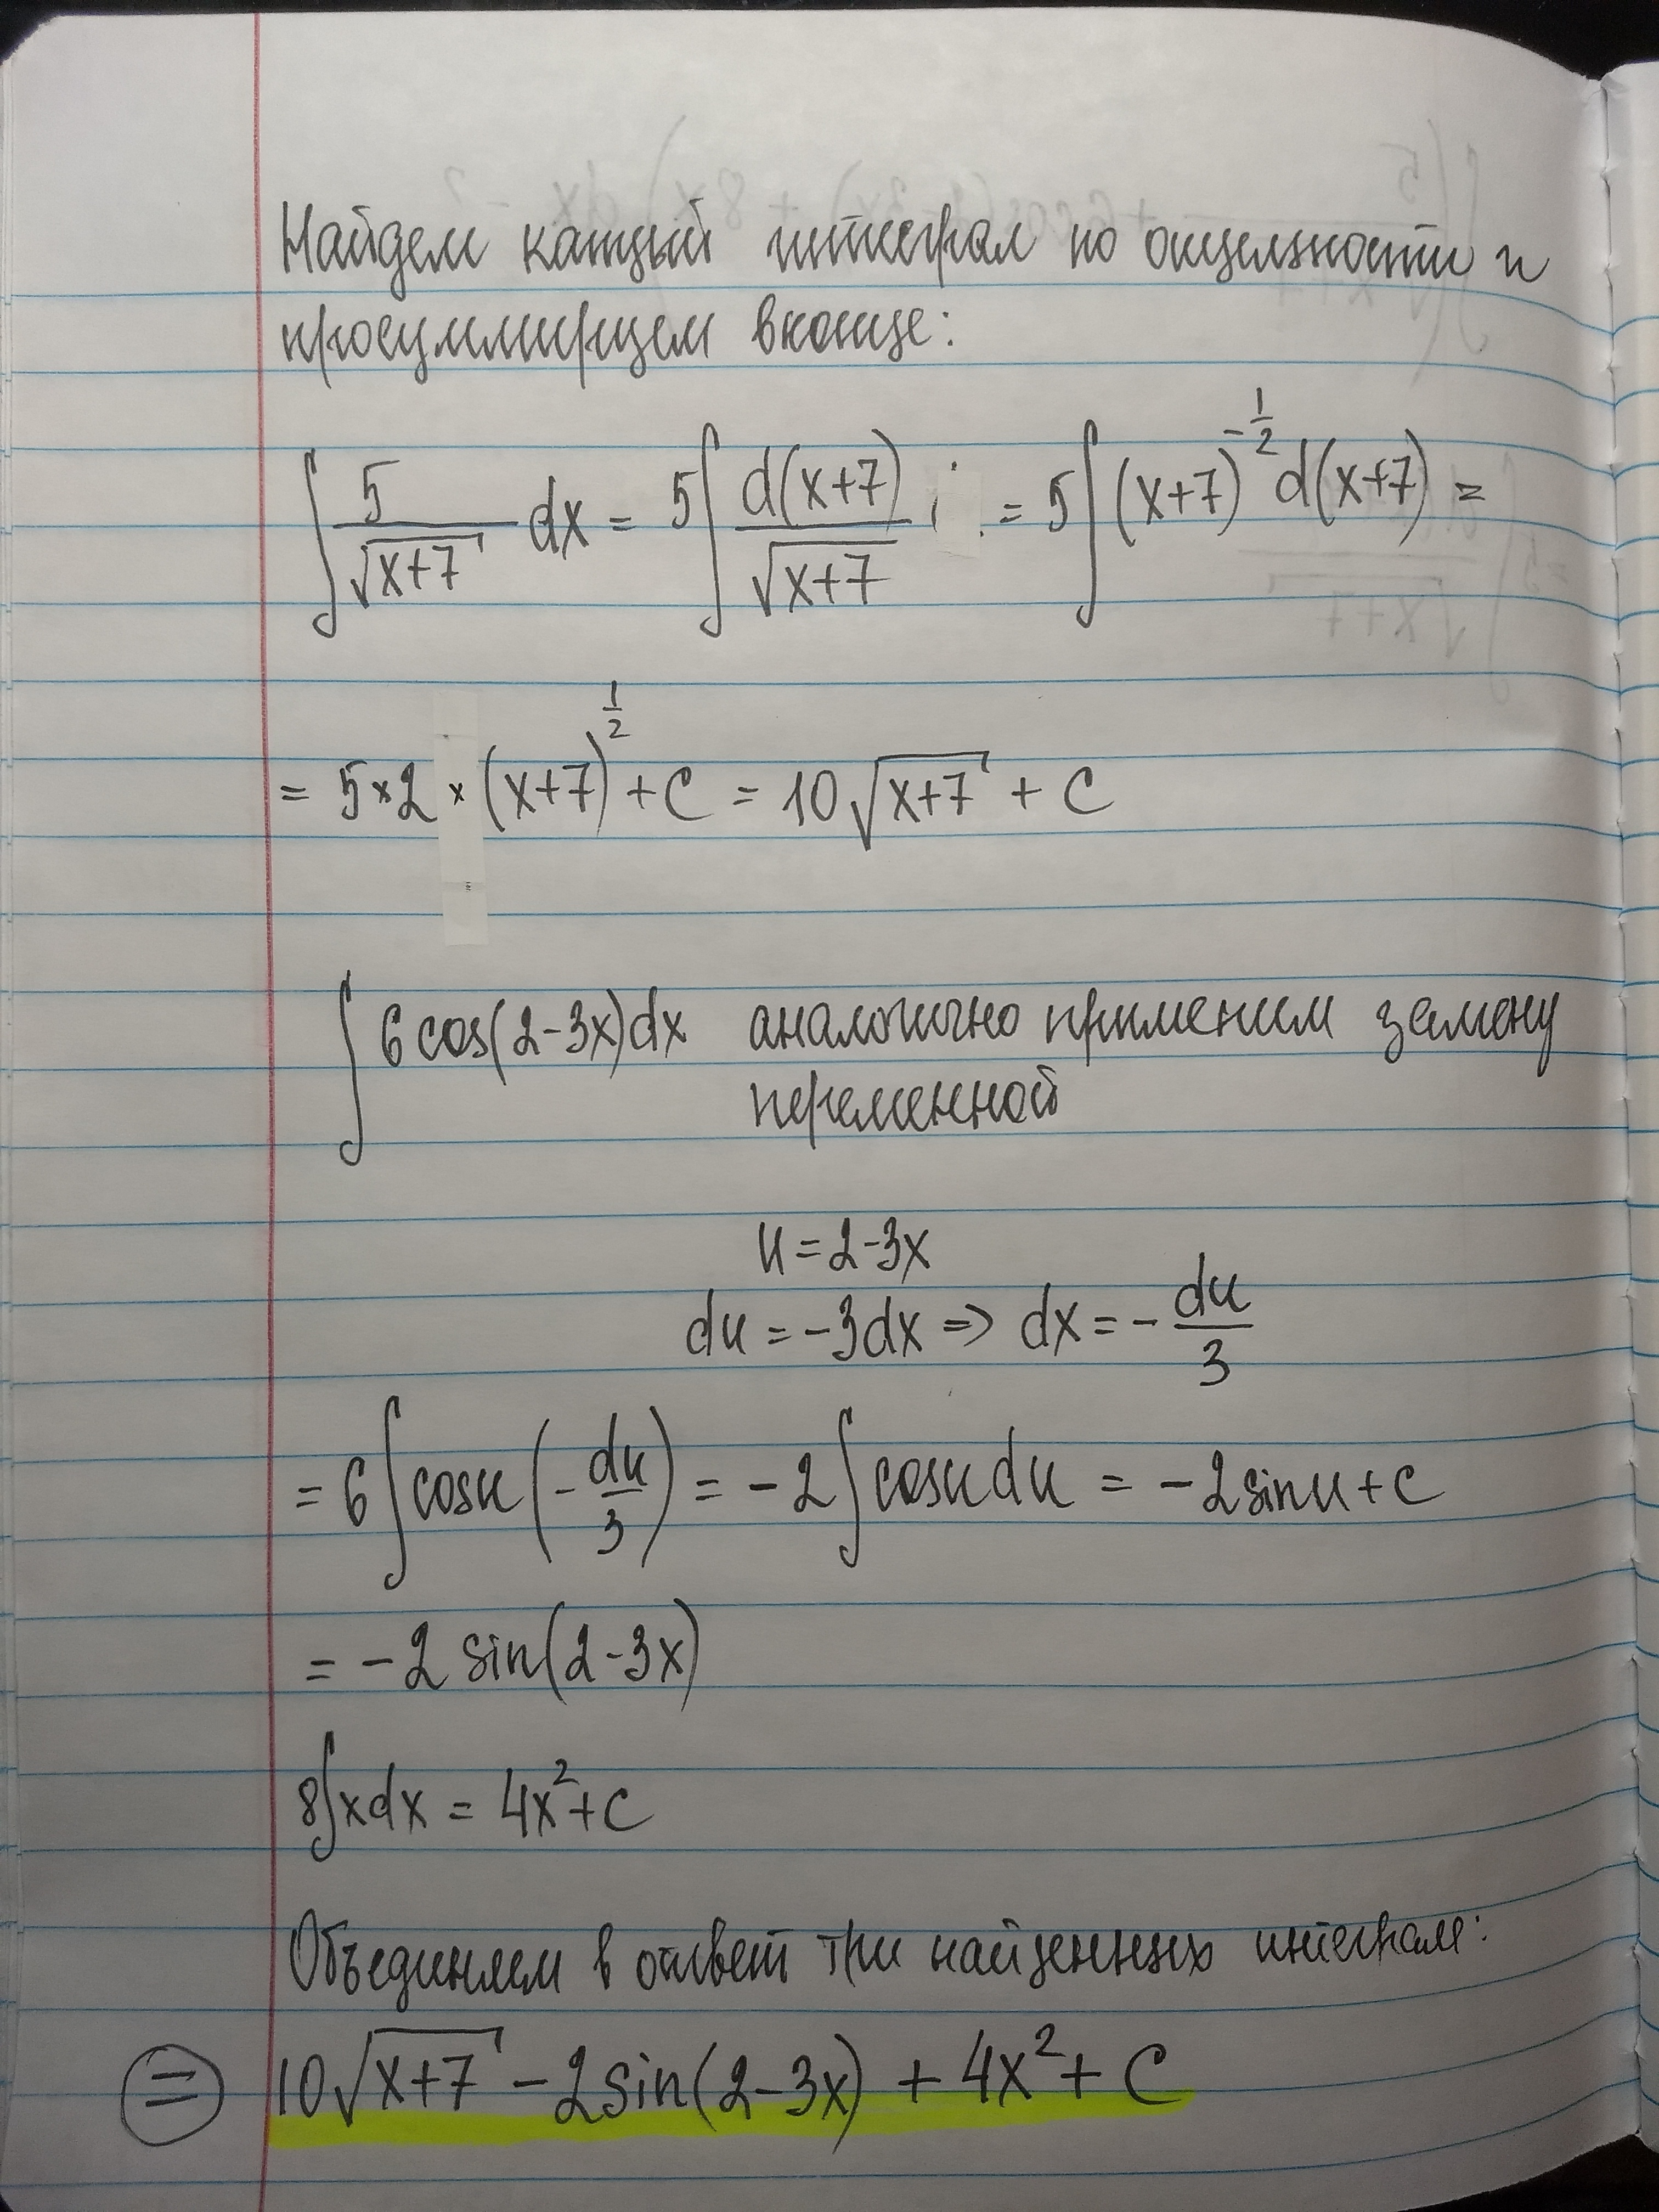 Найдем каждый интеграл по отдельности и
просуммируем в конце:
∫ 5/√(x+7) dx = 5∫ d(x+7)/√(x+7) = 5∫ (x+7)^(-1/2) d(x+7) =
= 5×2 × (x+7)^(1/2) + C = 10√(x+7) + C
∫ 6 cos(2-3x)dx аналогично применим замену
переменной
u = 2-3x
du = -3dx => dx = - du/3
= 6∫ cosu (- du/3) = -2∫ cosu du = -2sinu + C
= -2 sin(2-3x)
8∫xdx = 4x² + C
Объединяем в ответ три найденных интеграла:
= 10√(x+7) - 2sin(2-3x) + 4x² + C